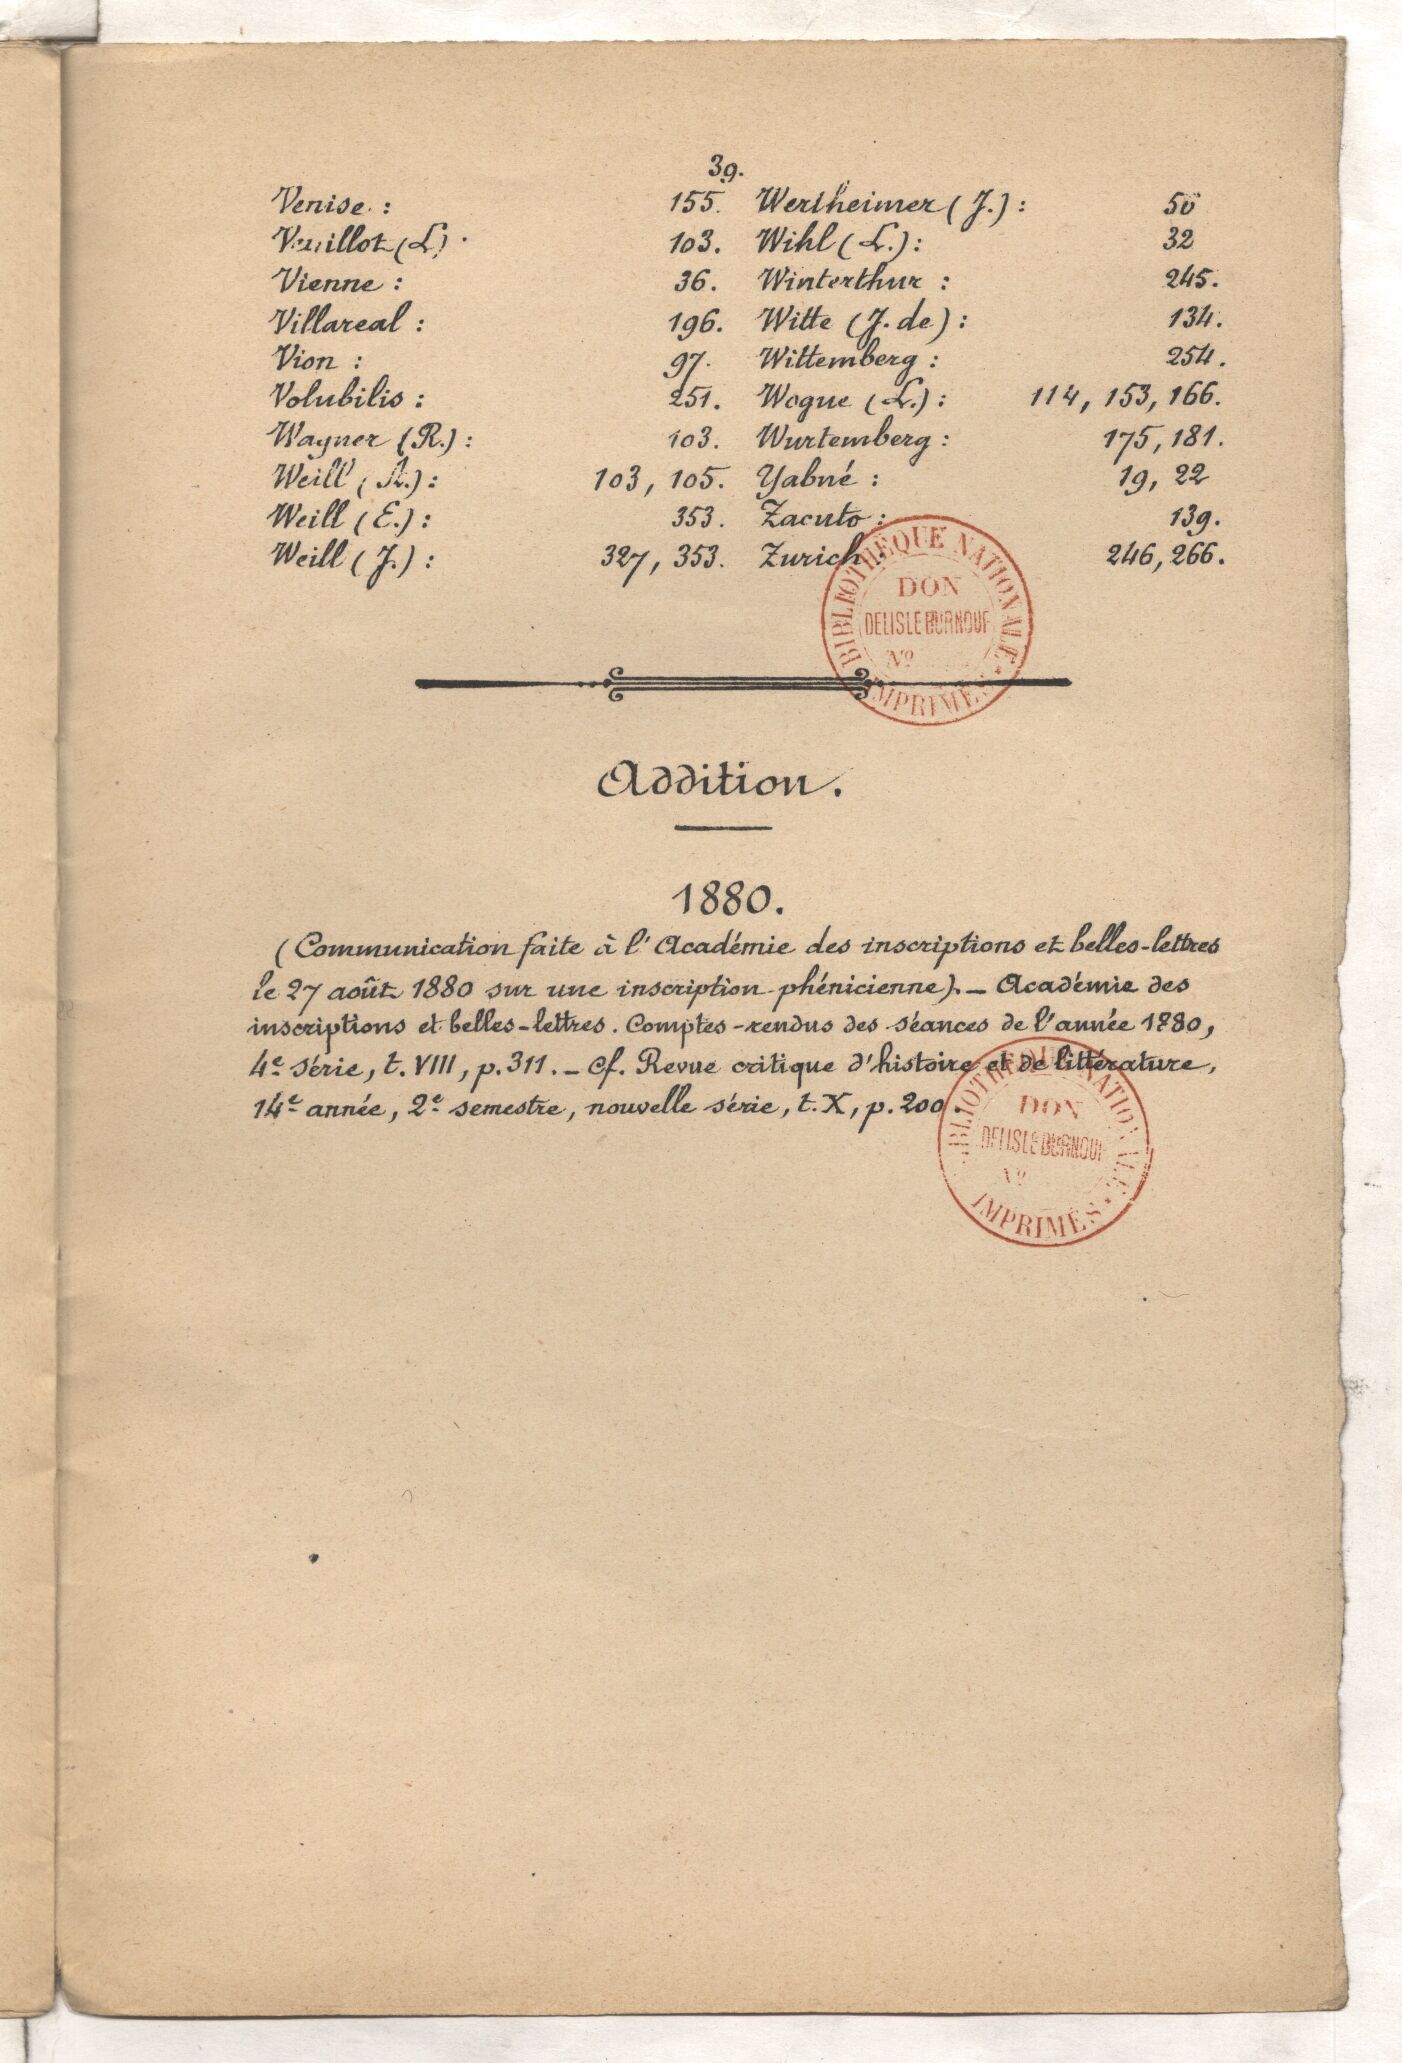 39.
Venise : 155.
Veuillot (L) . 103.
Vienne : 36.
Villareal : 196.
Vion : 97.
Volubilis : 251.
Wagner (R.) : 103.
Weill (A.) : 103, 105.
Weill (E.) : 353.
Weill (J.) : 327, 353.
Wertheimer (J.) : 50
Wihl (L.) : 32
Winterthur : 245.
Witte (J. de) : 134.
Wittemberg : 254.
Wogue (L.) : 114, 153, 166.
Wurtemberg : 175, 181.
Yabné : 19, 22
Zacuto : 139.
Zurich : 246, 266.
BIBLIOTHÈQUE NATIONALE
DON
DELISLE BURNOUF
No
IMPRIMÉS
Addition.
1880.
(Communication faite à l'Académie des inscriptions et belles-lettres
le 27 août 1880 sur une inscription phénicienne). – Académie des
inscriptions et belles-lettres. Comptes-rendus des séances de l'année 1880,
4e série, t. VIII, p. 311. – Cf. Revue critique d'histoire et de littérature,
14e année, 2e semestre, nouvelle série, t. X, p. 200.
BIBLIOTHÈQUE NATIONALE
DON
DELISLE BURNOUF
No
IMPRIMÉS